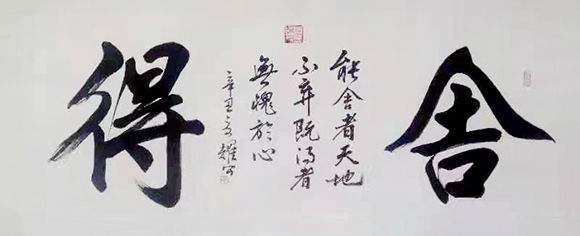 舍
能舍者天地
不弃既得者
無愧於心
辛丑 耀写
得